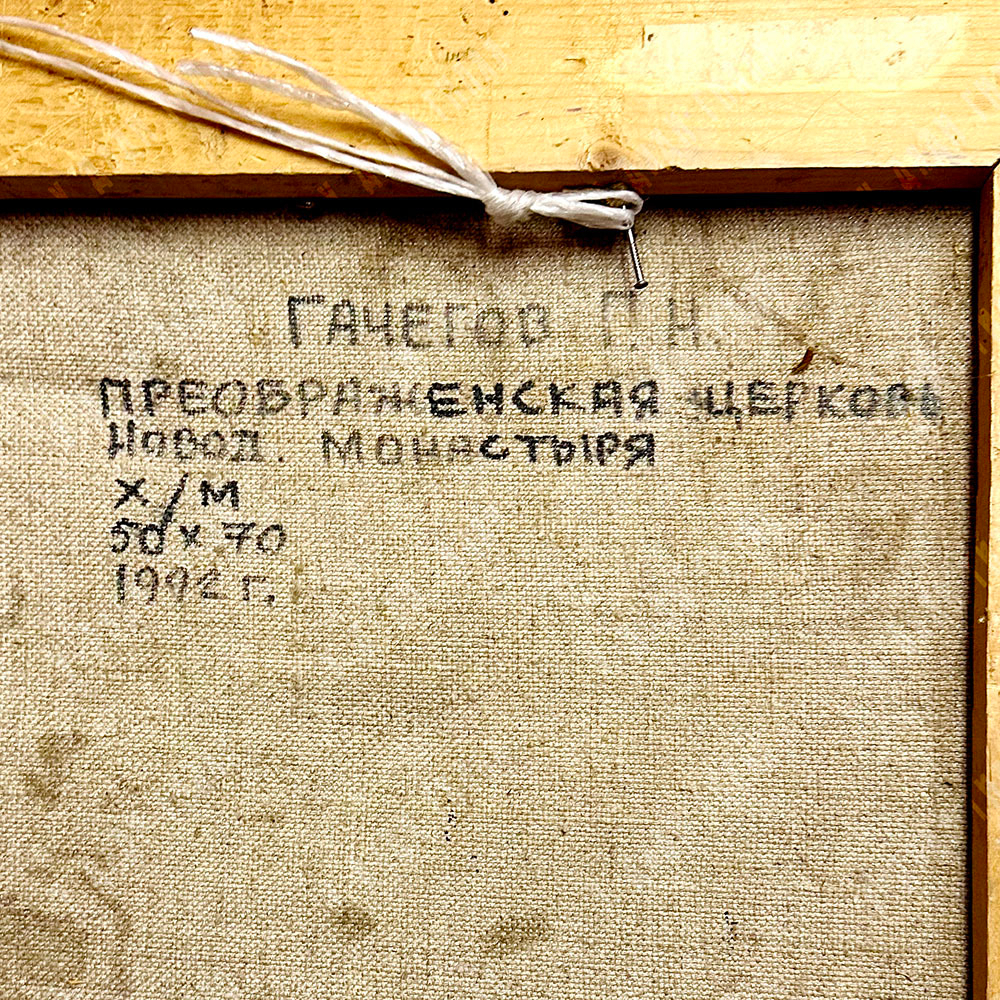 ГАЧЕГОВ Г. Н.
ПРЕОБРАЖЕНСКАЯ ЦЕРКОВЬ
НОВОД. МОНАСТЫРЯ
Х/М
50 х 70
1992 г.